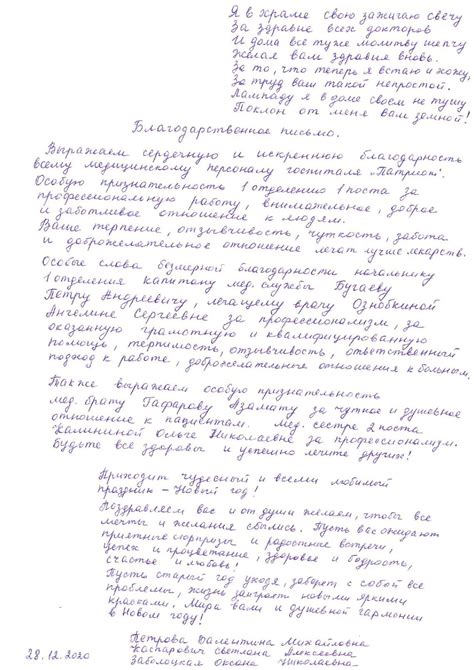 Я в храме свою зажигаю свечу
За здравие всех докторов
И дома всё ту же молитву шепчу
Желая вам здравия вновь.
За то, что теперь я встаю и хожу,
За труд ваш такой непростой.
Лампаду я в доме своем не тушу
Поклон от меня вам земной!
Благодарственное письмо.
Выражаем сердечную и искреннюю благодарность
всему медицинскому персоналу госпиталя „Патриот".
Особую признательность 1 отделению 1 поста за
профессиональную работу, внимательное, доброе
и заботливое отношение к людям.
Ваше терпение, отзывчивость, чуткость, забота
и доброжелательное отношение лечат лучше лекарств.
Особые слова безмерной благодарности начальнику
1 отделения капитану мед. службы Бугаеву
Петру Андреевичу, лечащему врачу Ознобкиной
Ангелине Сергеевне за профессионализм, за
оказанную грамотную и квалифицированную
помощь, терпимость, отзывчивость, ответственный
подход к работе, доброжелательное отношение к больным.
Также выражаем особую признательность
мед. брату Гафарову Азамату за чуткое и душевное
отношение к пациентам. Мед. сестре 2 поста
Калининой Ольге Николаевне за профессионализм.
Будьте все здоровы и успешно лечите других!
Приходит чудесный и всеми любимый
праздник – Новый год!
Поздравляем вас и от души желаем, чтобы все
мечты и желания сбылись. Пусть вас ожидают
приятные сюрпризы и радостные встречи,
успех и процветание, здоровье и бодрость,
счастье и любовь!
Пусть старый год уходя, заберет с собой все
проблемы, жизнь заиграет новыми яркими
красками. Мира вам и душевной гармонии
в Новом году!
Петрова Валентина Михайловна
28.12.2020 Каспарович Светлана Алексеевна
Заболоцкая Оксана Николаевна